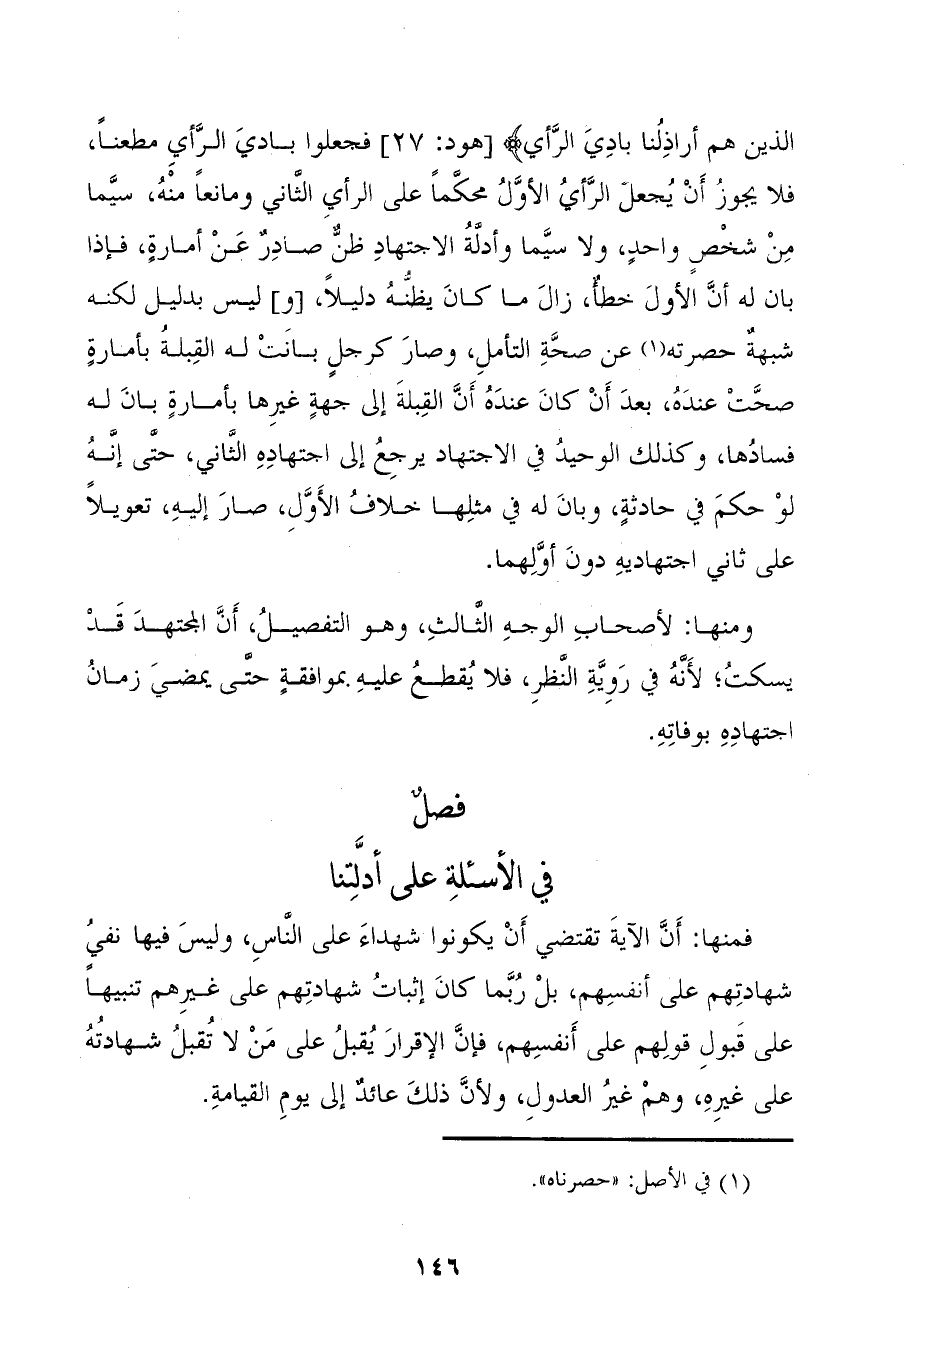 الذين هم أراذِلُنا بادِيَ الرَّأي﴾ [هود: ٢٧] فجعلوا بـاديَ الـرَّأيِ مطعنـاً،
فلا يجوزُ أَنْ يُجعلَ الرَّأيُ الأوَّلُ محكَّماً على الرأي الثَّاني ومانعاً منْهُ، سيَّما
مِنْ شخْصٍ واحدٍ، ولا سيَّما وأدلَّةُ الاجتهادِ ظنٌّ صـادِرٌ عَـنْ أمـارةٍ، فـإذا
بان له أنَّ الأولَ خطأٌ، زالَ مـا كـانَ يظنُّـهُ دليـلاً، [و] ليـس بدليـل لكنـه
شبهةٌ حصرته(١) عن صحَّةِ التأملِ، وصارَ كرجلٍ بـانَتْ لـه القِبلـةُ بأمـارةٍ
صحَّتْ عندَهُ، بعدَ أَنْ كانَ عندَهُ أنَّ القبلةَ إلى جهةٍ غيرِها بأمـارةٍ بـانَ لـه
فسادُها، وكذلك الوحيدُ في الاجتهاد يرجعُ إلى اجتهادِهِ الثَّاني، حتَّى إنَّـهُ
لوْ حكمَ في حادثةٍ، وبانَ له في مثلِهـا خـلافُ الأَوَّلِ، صـارَ إليـهِ، تعويـلاً
على ثاني اجتهاديهِ دونَ أوَّلِهما.
ومنهـا: لأصحـابِ الوجـهِ الثَّـالثِ، وهـو التفصيـلُ، أَنَّ المجتهـدَ قَـدْ
يسكتُ؛ لأنَّهُ في رَويَّةِ النَّظرِ، فلا يُقطـعُ عليـهِ بموافقـةٍ حتَّـى يمضـيَ زمـانُ
اجتهادِهِ بوفاتِهِ.
فصلٌ
في الأسئلةِ على أدلَّتِنا
فمنها: أَنَّ الآيةَ تقتضي أَنْ يكونوا شهداءَ على النَّاسِ، وليسَ فيها نفيُ
شهادتِهم على أنفسِهم، بلْ رُبَّما كانَ إثباتُ شهادتِهم على غـيرِهم تنبيهـاً
على قَبولِ قولِهم على أنفسِهم، فإنَّ الإقرارَ يُقبلُ على مَنْ لا تُقبلُ شـهادتُهُ
على غيرِهِ، وهمْ غيرُ العدولِ، ولأنَّ ذلكَ عائدٌ إلى يومِ القيامةِ.
(١) في الأصل: «حصرناه».
١٤٦